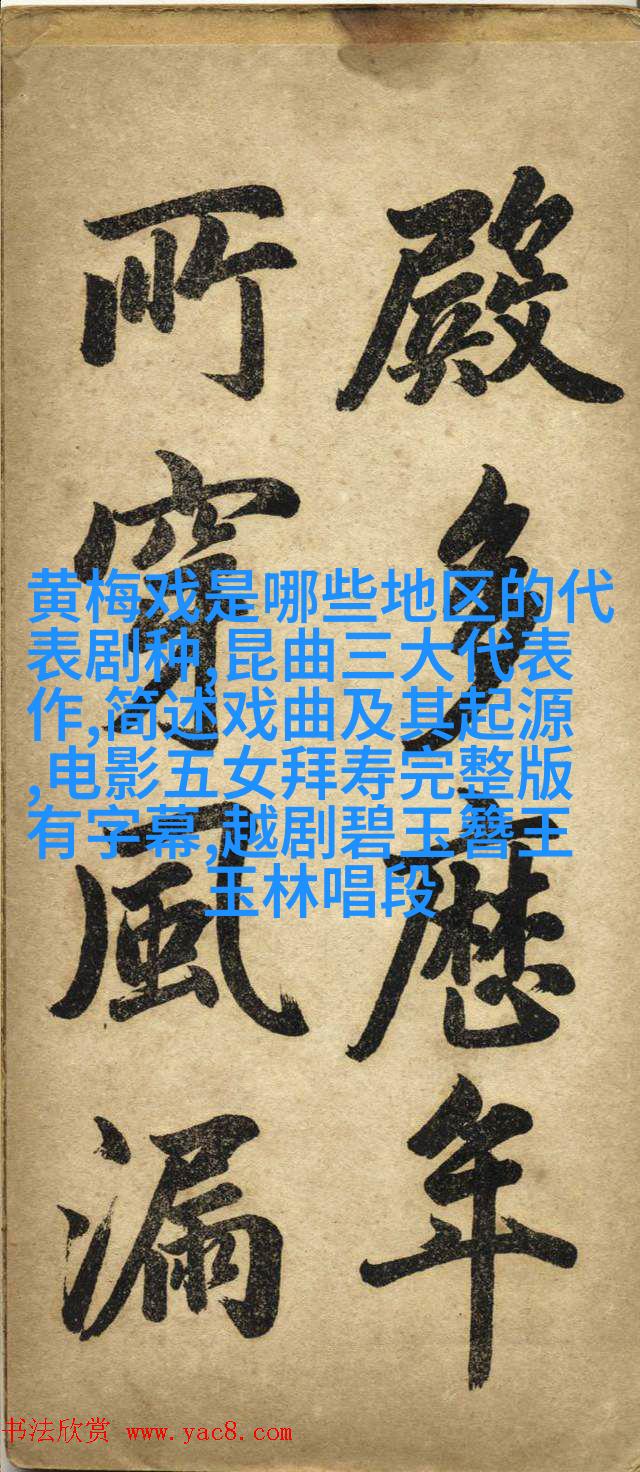 殿多歷年
所穿風漏
黄梅戏是哪些地区的代
表剧种,昆曲三大代表
作,简述戏曲及其起源
,电影五女拜寿完整版
有字幕,越剧碧玉簪王
玉林唱段
书法欣赏 www.yac8.com